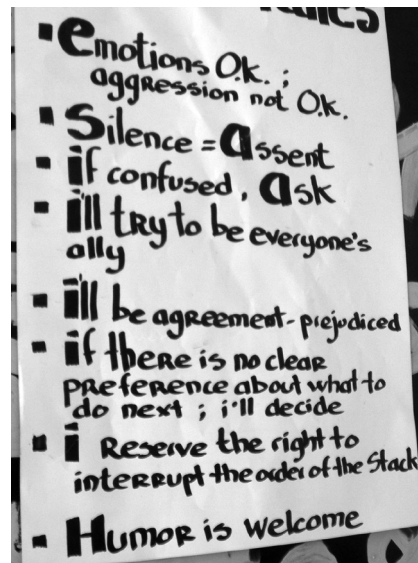 ▪ Emotions O.K. ;
aggression not O.K.
▪ Silence = Assent
▪ if confused, Ask
▪ i'll try to be everyone's
ally
▪ i'll be agreement-prejodiced
▪ if there is no clear
preference about what to
do next ; i'll decide
▪ i Reserve the right to
interrupt the order of the Stack
▪ Humor is welcome